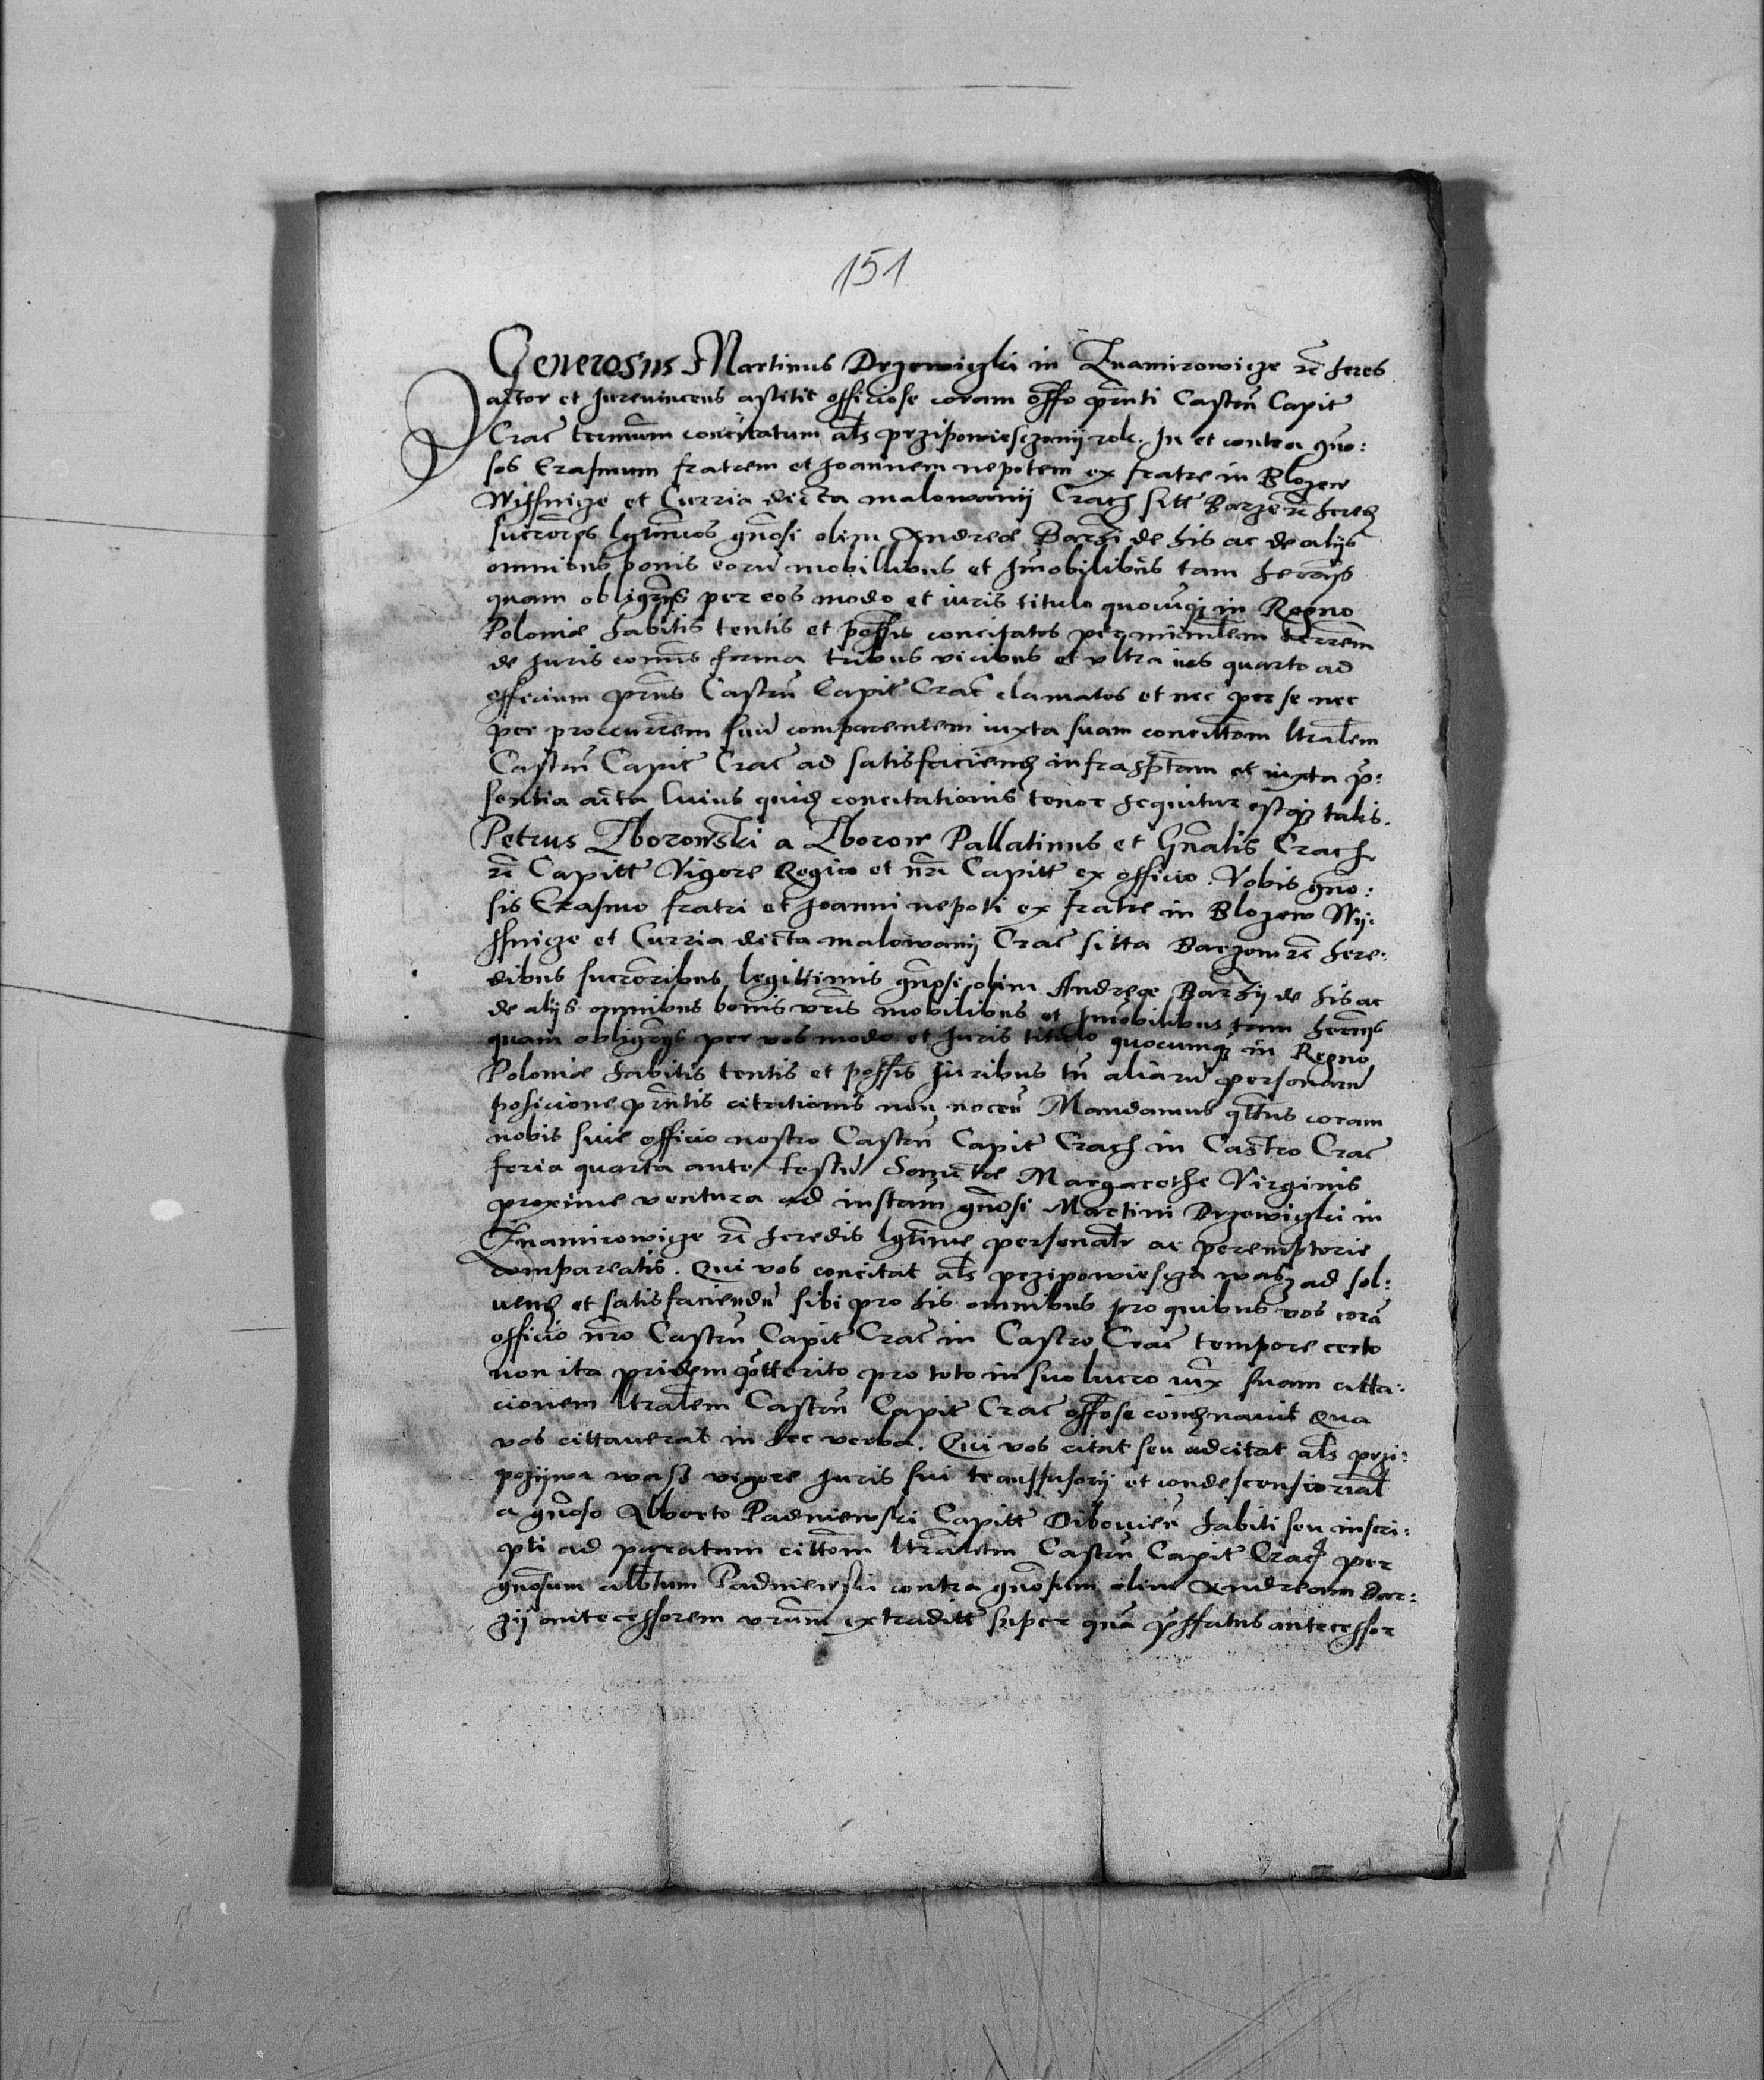 151
Generosus Martinus Drzewiczki in Znamirowicze etc heres
actor et Jurevincens astitit officiose coram offo pnti Castrn Capit
Crac terminum concitatum als przipowiesczonÿ rok. In et contra gno:
sos Erasmum fratrem et Joannem nepotem ex fratre in Blozew
Wissnicze et Curria dicta malowanÿ Crach sitt Barze etc hered
sucrores lgtimos gnosi olim Andreæ Barzi de his ac de alijs
omnibus bonis eoru mobillibus et Jmobilibus tam heredijs
quam obligrijs per eos modo et iuris titulo quocuqz in Regno
Poloniæ habitis tentis et possis concitatos per ministlem terrem
de Juris comis forma tribus vicibus et vltra ius quarto ad
officium prns Castrn Capit Crac clamatos et nec per se nec
per proccurrem suu comparentem iuxta suam concittom ltralem
Castrn Capit Crac ad satisfaciend infrasptam et iuxta p:
sentia acta cuius quid concitationis tenor sequitur estqz talis.
Petrus Zborowski a Zborow Pallatinus et Gnalis Crach
etc Capitt Vigore Regio et nri Capitt ex officio. Vobis gno:
sis Erasmo fratri et Joanni nepoti ex fratre in Blozew Wÿ:
ssnicze et Curria dicta malowanÿ Crac sitta Barzom etc here:
dibus sucroribus legittimis gnosi olim Andreæ Barzÿ de his ac
de alijs omnibus bonis vris mobilibus et Jmobilibus tam heredijs
quam obligrijs per vos modo et Juris titulo quocumqz in Regno
Poloniæ habitis tentis et possis Juribus tn aliaru personaru
posicione prntis citationis non nocen Mandamus qttnus coram
nobis siue officio nostro Castrn Capit Crach in Castro Crac
feria quarta ante festu Sanctæ Margarethe Virginis
proxime ventura ad instam gnosi Martini Drzewiczki in
Znamirowicze etc heredis lgtime personalr ac peremptorie
compareatis. Qui vos concitat als przipowiescza wasz ad sol:
uend et satisfaciendu sibi pro his omnibus pro quibus vos cora
officio nro Castrn Capit Crac in Castro Crac tempore certo
non ita pridem ptterito pro toto in suo lucro iux suam citta:
cionem ltralem Castrn Capit Crac offose condnauit Qua
vos cittauerat in hec verba. Qui vos citat seu adcitat als przi:
pozÿwa wasz vigore Juris sui transfusorÿ et condescensorial
a gnoso Alberto Padniewski Capitt Dibouien habiti seu inscri:
pti ad paratum cittom ltralem Castrn Capit Crac per
gnosum albtum Padniewski contra gnosum olim Andream Bar:
zÿ antecessorem vrum extraditt super qua pffatus antecessor